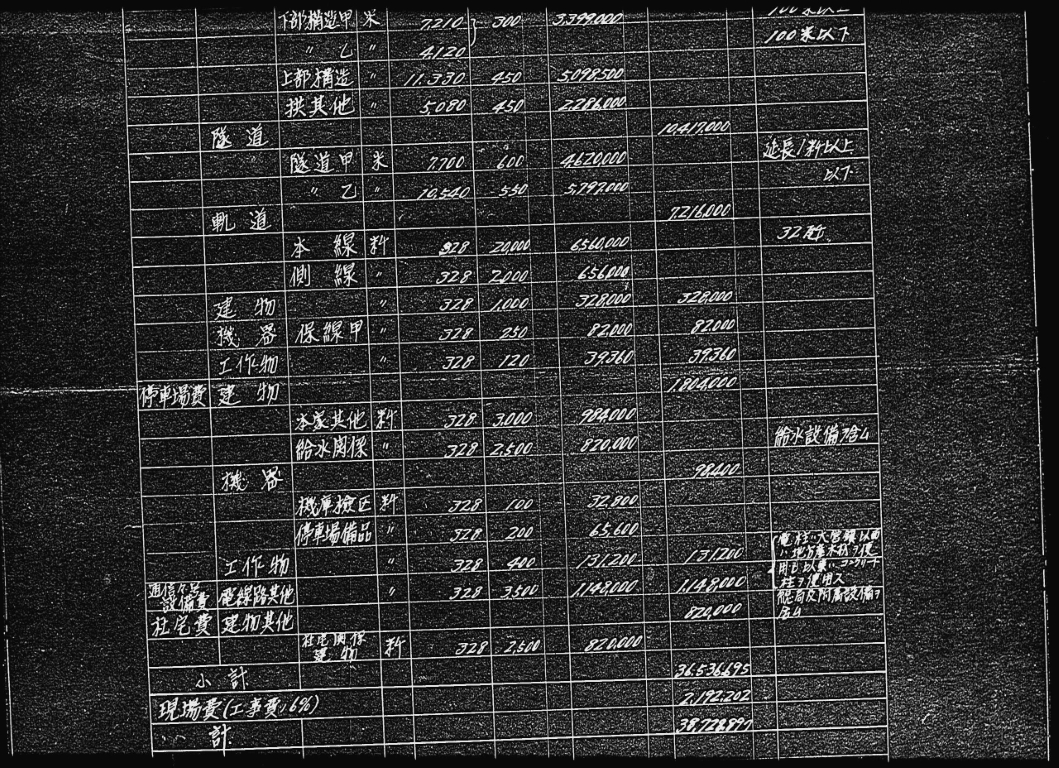 下部構造甲 米 7,210 300 3,399,000 100米以上
〃 乙 〃 4,120 100米以下
上部構造 〃 11,330 450 5,098,500
拱其他 〃 5,080 450 2,286,000
隧道 10,417,000
隧道甲 米 7,700 600 4,620,000 延長1粁以上
〃 乙 〃 10,540 550 5,797,000 以下
軌道 7,216,000
本線 粁 328 20,000 6,560,000 32瓩
側線 〃 328 2,000 656,000
建物 〃 328 1,000 328,000 328,000
機器 保線甲 〃 328 250 82,000 82,000
工作物 〃 328 120 39,360 39,360
停車場費 建物 1,804,000
本家其他 粁 328 3,000 984,000
給水関係 〃 328 2,500 820,000 給水設備ヲ含ム
機器 98,400
機庫検区 粁 328 100 32,800
停車場備品 〃 328 200 65,600
工作物 〃 328 400 131,200 131,200
通信 設備費 電線路其他 〃 328 3,500 1,148,000 1,148,000
社宅費 建物其他 820,000
社宅関係建物 粁 328 2,500 820,000
小計 36,536,695
現場費(工事費ノ6%) 2,192,202
小計 38,728,897